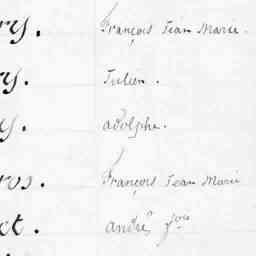 ry. François Jean Marie.
y. Julien.
y. adolphe.
ros. François Jean Marie
et. andré fois